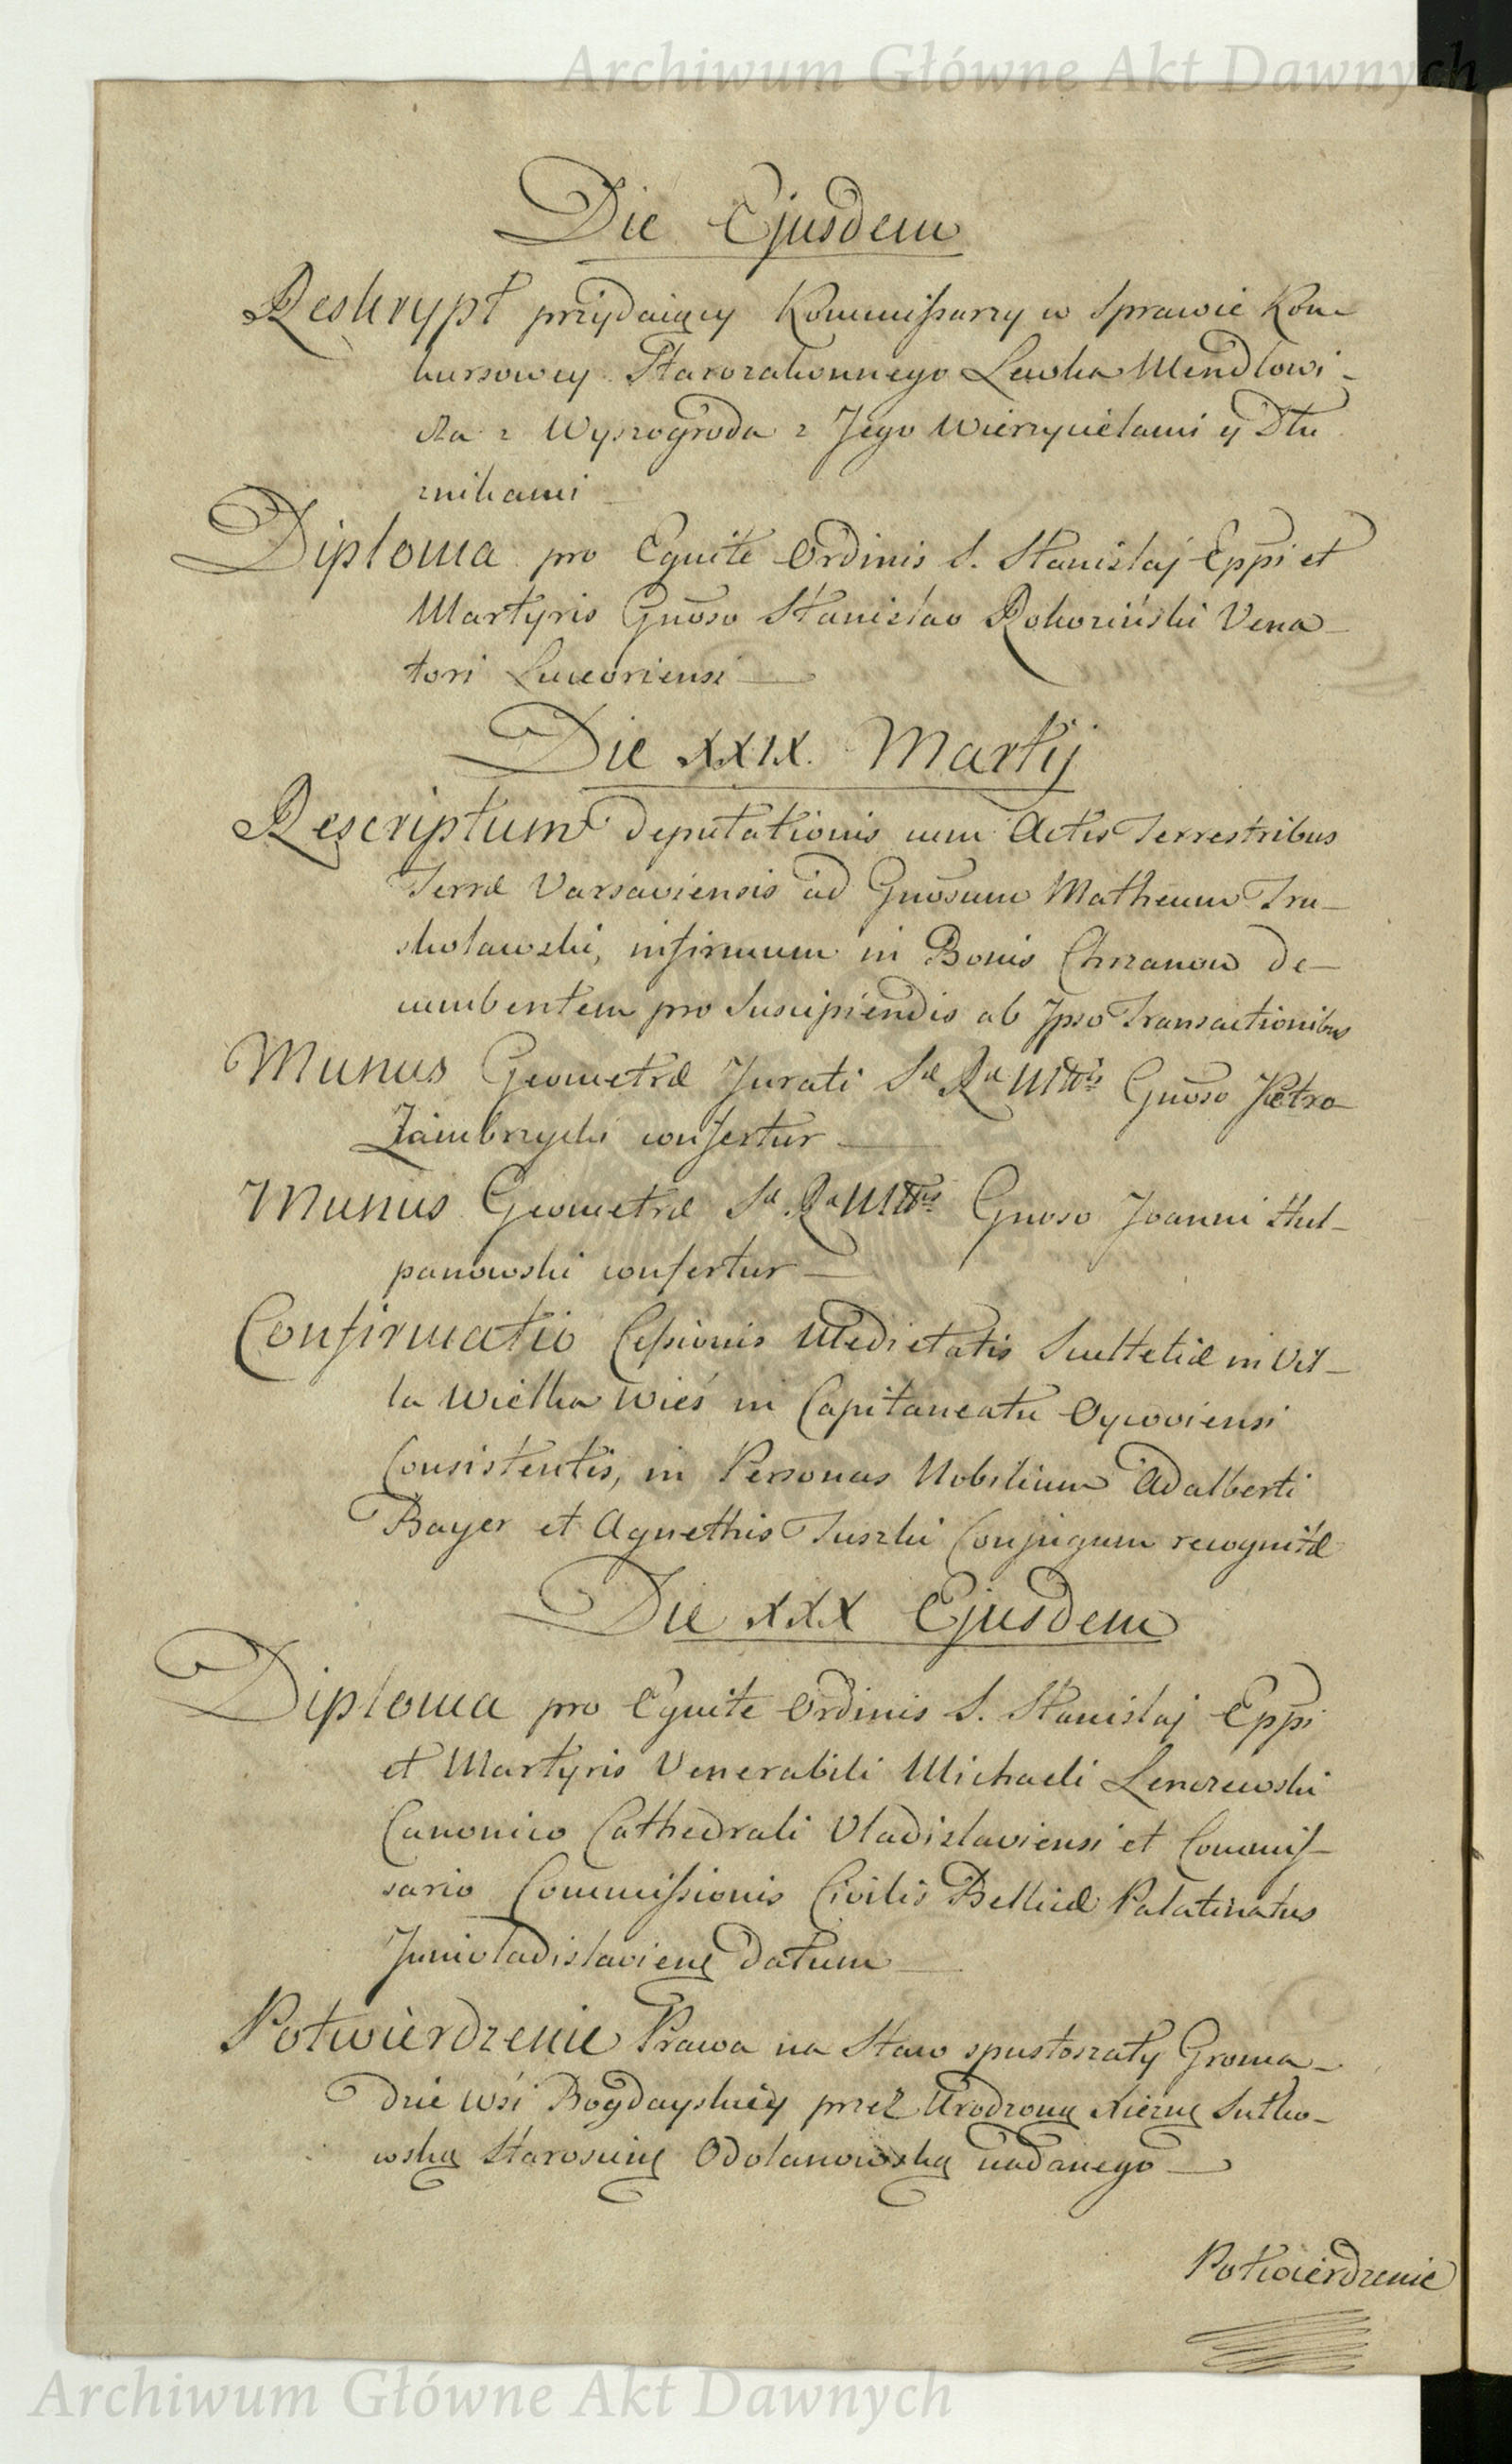 Archiwum Główne Akt Dawnych
Die Ejusdem
Reskrypt przydaiący Kommissarzy w Sprawie Kon-
kursowey Starozakonnego Lewka Mendlowi-
cza z Wyszogroda z Jego Wierzycielami y Dłu
znikami
Diploma pro Equite Ordinis S. Stanislaj Eppi et
Martyris Gnoso Stanislao Rokoziński Vena-
tori Luceoriensi
Die XXIX. Martij
Rescriptum Deputationis cum Actis Terrestribus
Terræ Varsaviensis ad Gnosum Matheum Tru-
skolawski, infirmum in Bonis Chrzanow de-
cumbentem pro Suscipiendis ab Ipso Transactionibus
Munus Geometræ Jurati Sæ Ræ Mttis Gnoso Petro
Zambrzycki confertur
Munus Geometræ Sæ Ræ Mttis Gnoso Joanni Stul-
panowski confertur
Confirmatio Cessionis Medietatis Scultetiæ in Vil-
la Wielka Wieś in Capitaneatu Oycoviensi
Consistentis, in Personas Nobilium Adalberti
Bayer et Agnethis Tuszki Conjugum recognitæ
Die XXX Ejusdem
Diploma pro Equite Ordinis S. Stanislaj Eppi
et Martyris Venerabili Michaeli Lenczewski
Canonico Cathedrali Vladislaviensi et Commis-
sario Commissionis Civilis Bellicæ Palatinatus
Junivladislaviens Datum
Potwierdzenie Prawa na Staw spustoszały Groma-
dzie Wsi Bogdayskiey przez Urodzoną Xiezną Sułko-
wską Starościnę Odolanowską nadanego
Potwierdzenie
Archiwum Główne Akt Dawnych